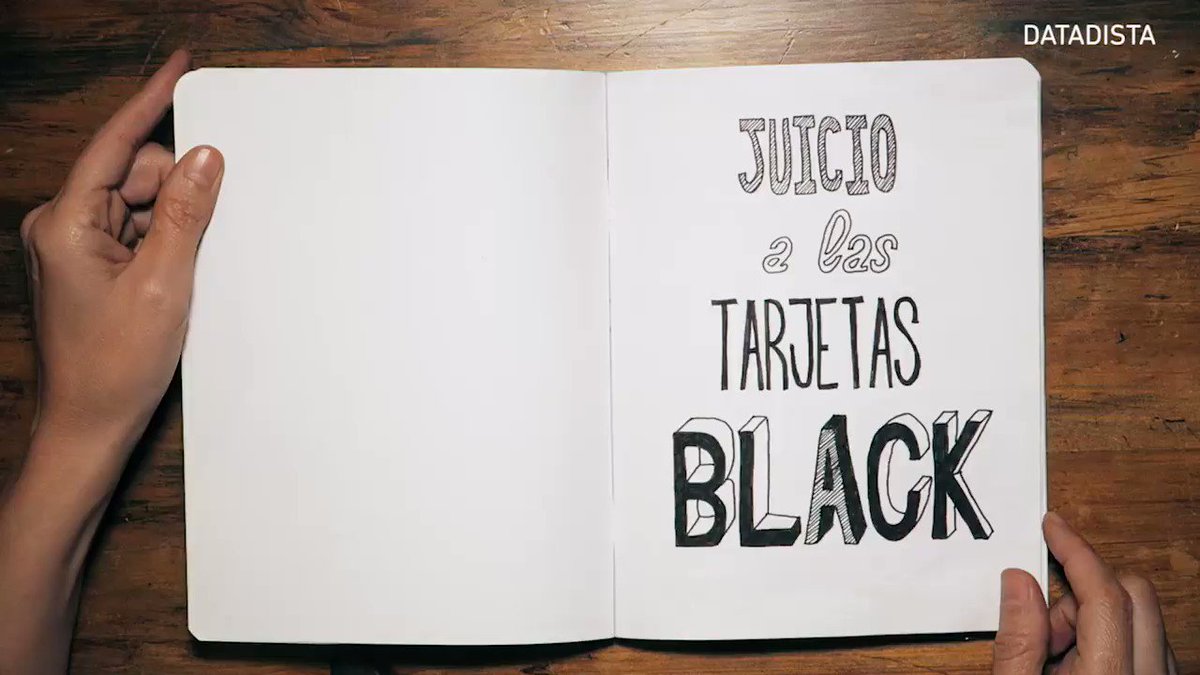 DATADISTA
JUICIO
a las
TARJETAS
BLACK